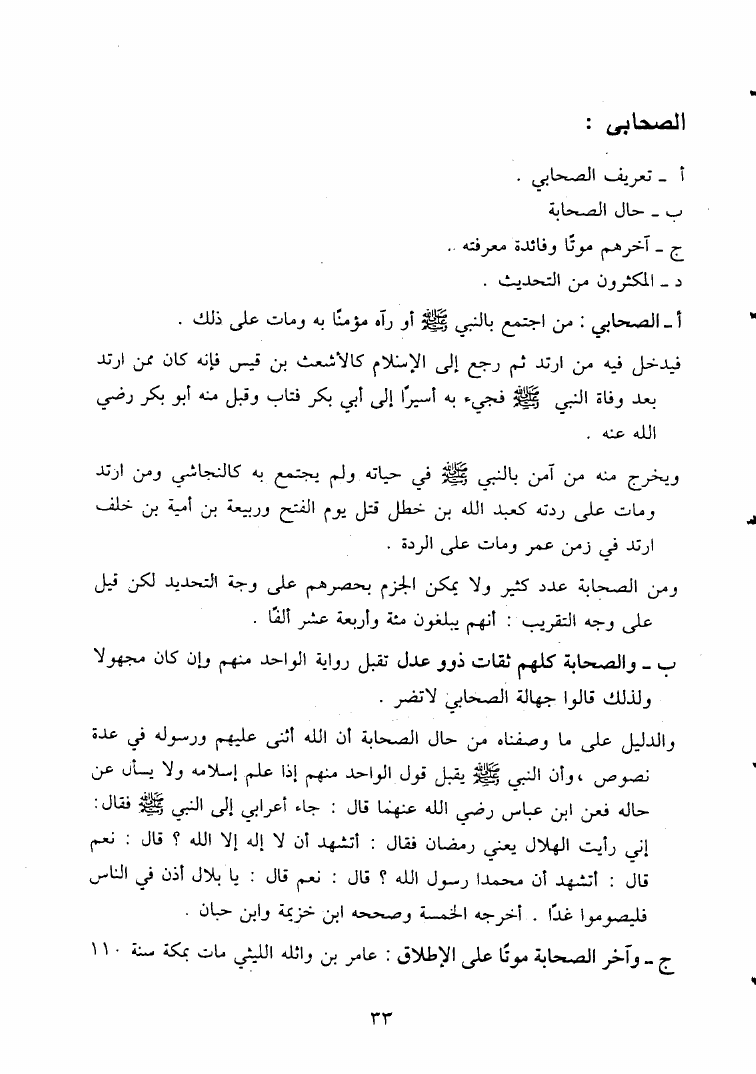 الصحابى :
أ ـ تعريف الصحابي .
ب ـ حال الصحابة
ج ـ آخرهم موتًا وفائدة معرفته .
د ـ المكثرون من التحديث .
أ ـ الصحابي : من اجتمع بالنبي ﷺ أو رآه مؤمنًا به ومات على ذلك .
فيدخل فيه من ارتد ثم رجع إلى الإسلام كالأشعث بن قيس فإنه كان ممن ارتد
بعد وفاة النبي ﷺ فجيء به أسيرًا إلى أبي بكر فتاب وقبل منه أبو بكر رضي
الله عنه .
ويخرج منه من آمن بالنبي ﷺ في حياته ولم يجتمع به كالنجاشي ومن ارتد
ومات على ردته كعبد الله بن خطل قتل يوم الفتح وربيعة بن أمية بن خلف
ارتد في زمن عمر ومات على الردة .
ومن الصحابة عدد كثير ولا يمكن الجزم بحصرهم على وجة التحديد لكن قيل
على وجه التقريب : أنهم يبلغون مئة وأربعة عشر ألفًا .
ب ـ والصحابة كلهم ثقات ذوو عدل تقبل رواية الواحد منهم وإن كان مجهولا
ولذلك قالوا جهالة الصحابي لاتضر .
والدليل على ما وصفناه من حال الصحابة أن الله أثنى عليهم ورسوله في عدة
نصوص ، وأن النبي ﷺ يقبل قول الواحد منهم إذا علم إسلامه ولا يسأل عن
حاله فعن ابن عباس رضي الله عنهما قال : جاء أعرابي إلى النبي ﷺ فقال :
إني رأيت الهلال يعني رمضان فقال : أتشهد أن لا إله إلا الله ؟ قال : نعم
قال : أتشهد أن محمدا رسول الله ؟ قال : نعم قال : يا بلال أذن في الناس
فليصوموا غدًا . أخرجه الخمسة وصححه ابن خزيمة وابن حبان .
ج ـ وآخر الصحابة موتًا على الإطلاق : عامر بن واثله الليثي مات بمكة سنة ١١٠
٣٣